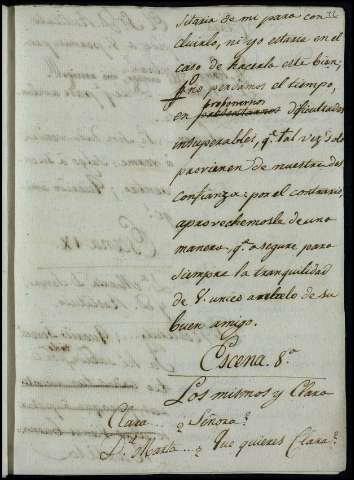 36
sitaria de mi para con
cluirlo, ni yo estaria en el
caso de hacerle este bien;
no perdamos el tiempo,
proponernos
en dificultades
insuperables, q.e tal vez solo
provienen de nuestra des
confianza: por el contrario,
aprovechemosle de una
manera, q.e asegure para
siempre la tranquilidad
de V. unico anhelo de su
buen amigo.
Escena 8.a
Los mismos y Clara
Clara... ¿Señora?
D.a Marta...¿Que quieres Clara?